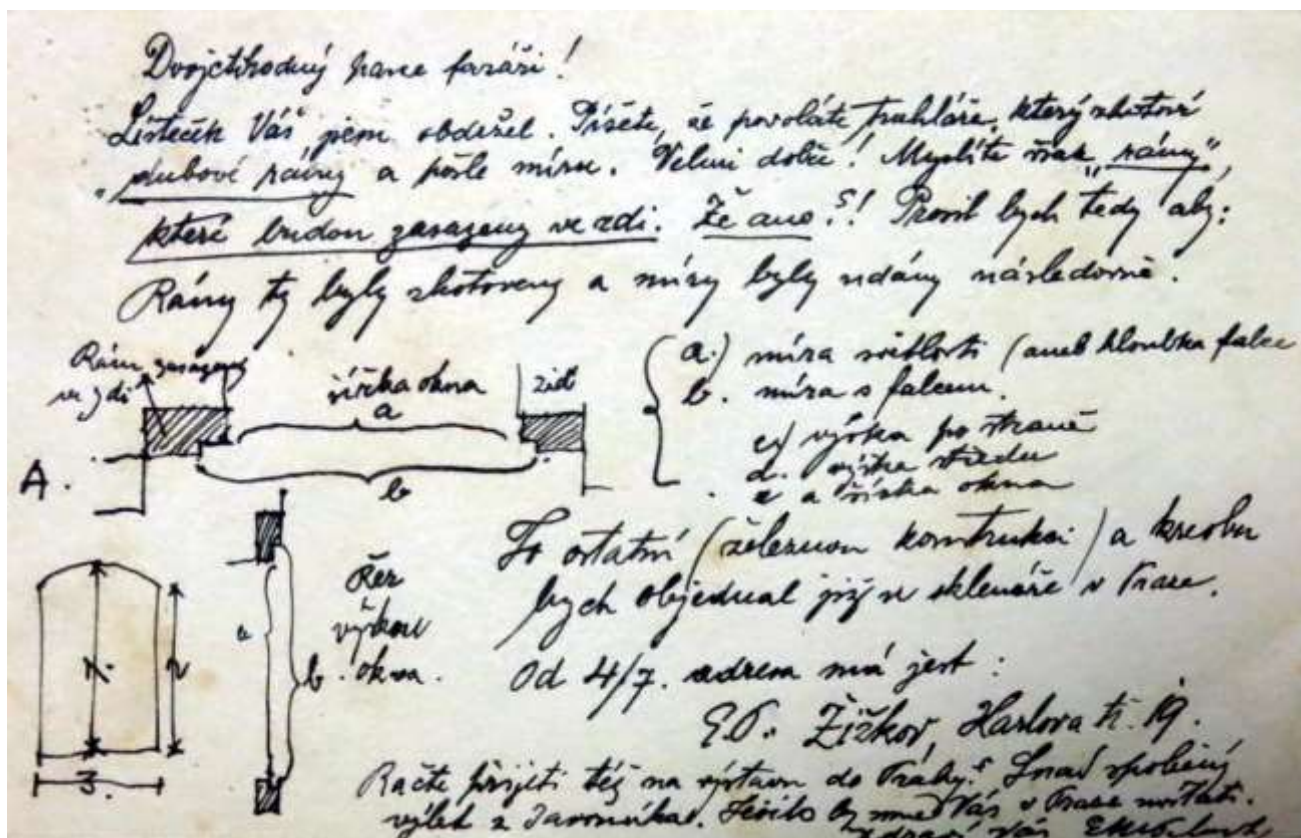 Dvojctihodný pane faráři!
Lísteček Váš jsem obdržel. Píšete, že povoláte truhláře, který zhotoví
„dubové rámy a pošle míru. Velmi dobře! Myslíte však „rámy",
které budou zasazeny ve zdi. Že ano?! Prosil bych tedy aby:
Rámy ty byly zhotoveny a míry byly udány následovně.
Rám zasazený
ve zdi
šířka okna
a
zidˇ
b
A.
a.) míra světlosti (aneb hloubka falce
b. míra s falcem.
c) výška po straně
d. výška středu
e a šířka okna
To ostatní (železnou konstrukci) a kresbu
bych objednal již u sklenáře v Praze.
Od 4/7. adresa má jest:
Žižkov, Harlova tř. 19.
a
b
Řez
výškou
okna.
1.
2
3.
Račte přijeti též na výstavu do Prahy? Snad společný
výlet z Javorníka. Těšilo by mne Vás v Praze uvítati.
Vás